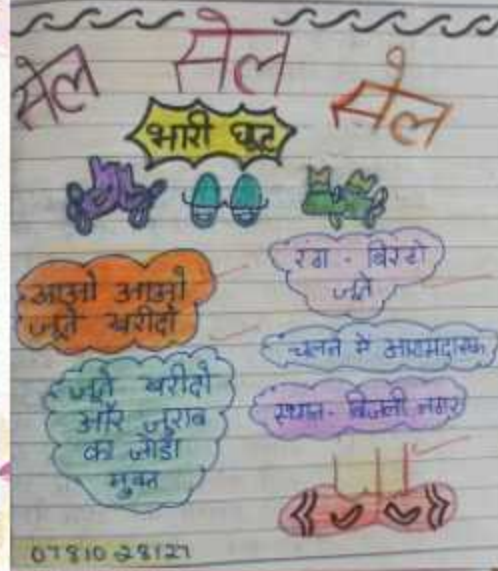 सेल सेल सेल
भारी छूट
आओ आओ
जूते खरीदो
रंग - बिरंगे
जूते
चलने में आरामदायक
जूते खरीदो
और जुराब
का जोड़ा
मुफ्त
स्थान - बिजली नगर
07810 28127